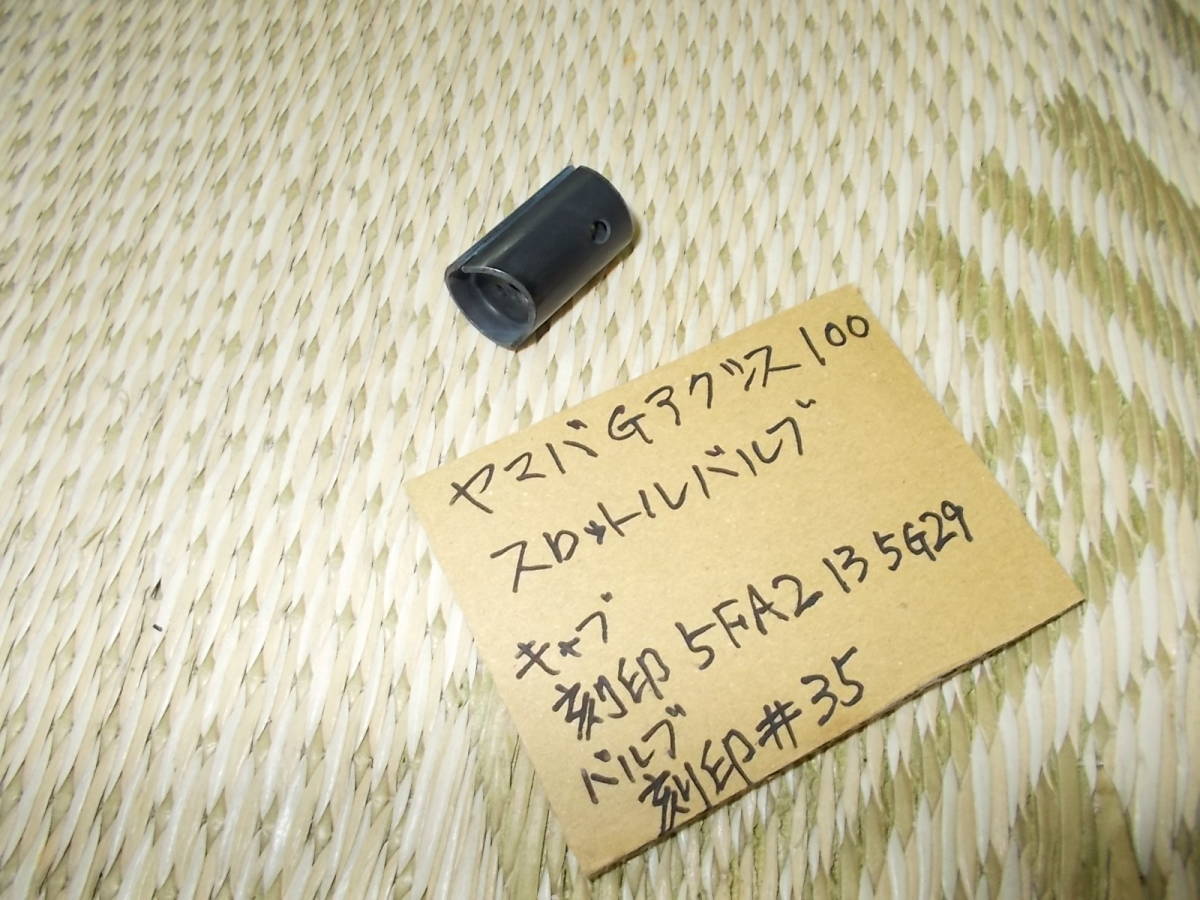 ヤマハGアクシス100
スロットルバルブ
キャブ
刻印 5FA2 13 5G29
バルブ
刻印#35